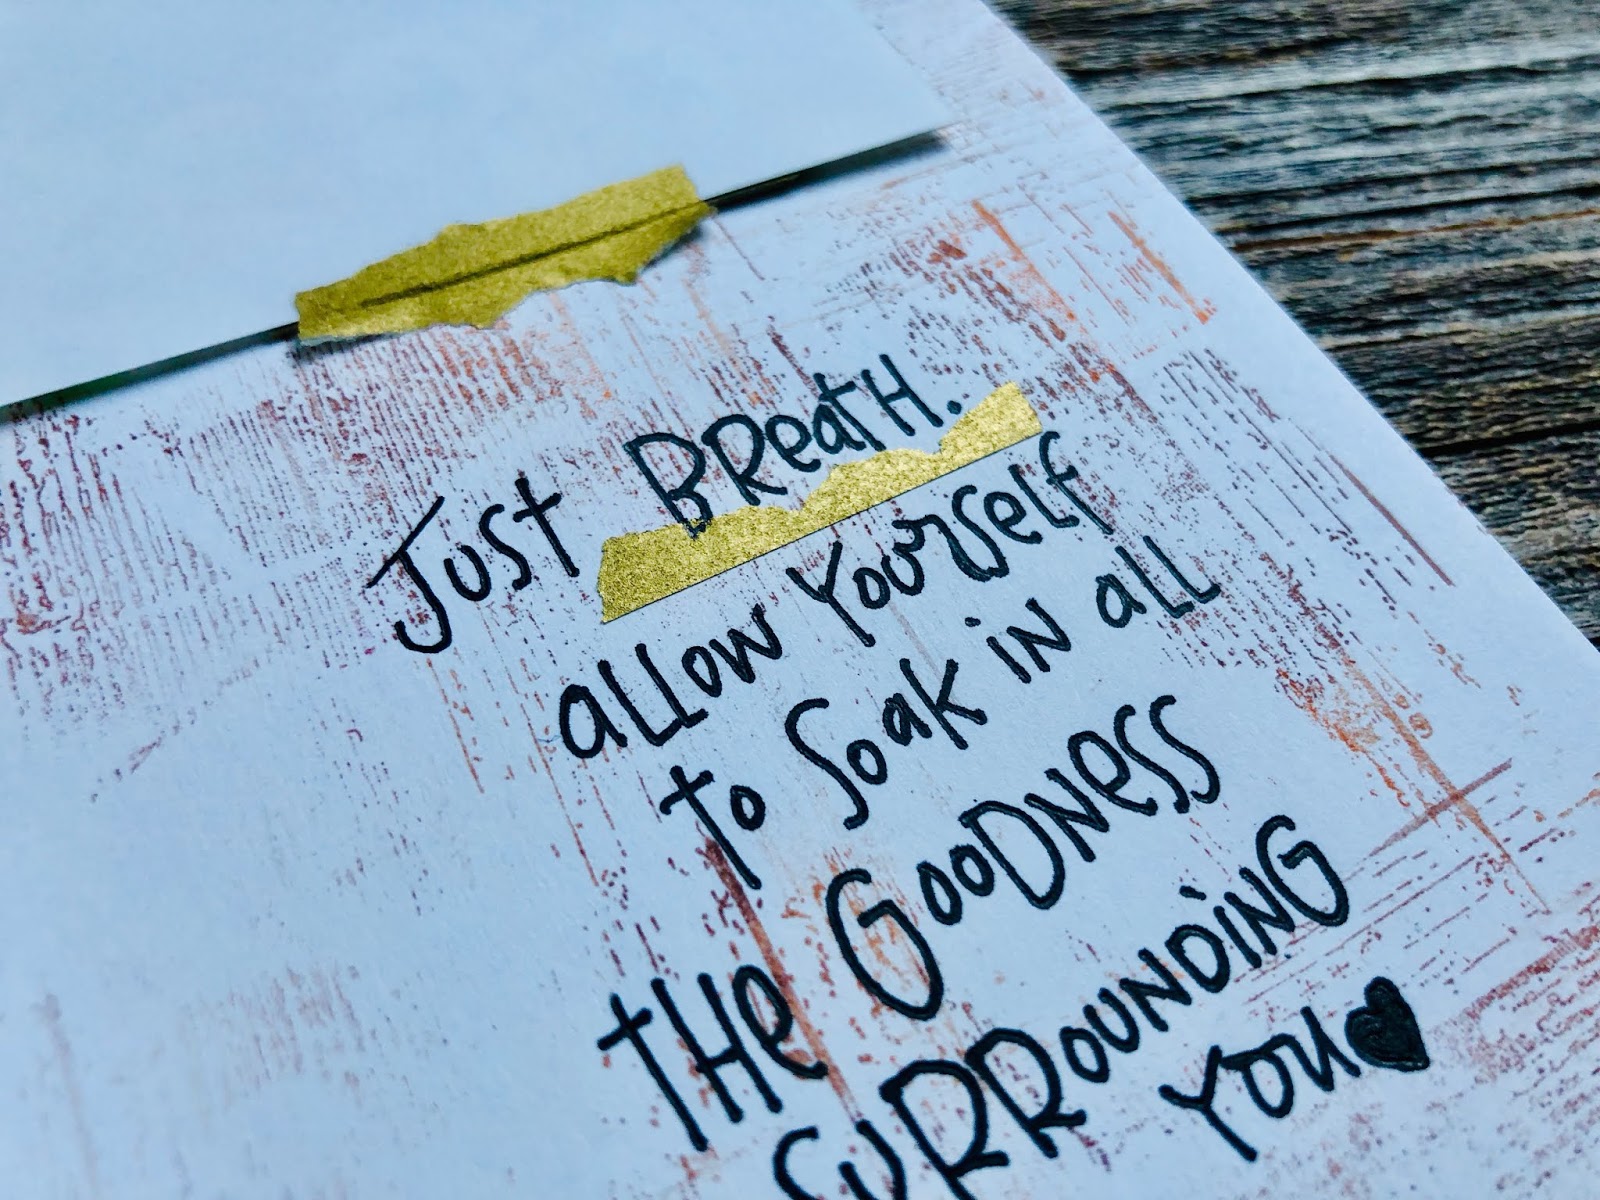 Just BReatH.
allow Yourself
to Soak in all
tHe GooDNess
SURROUNDiNG
YOU